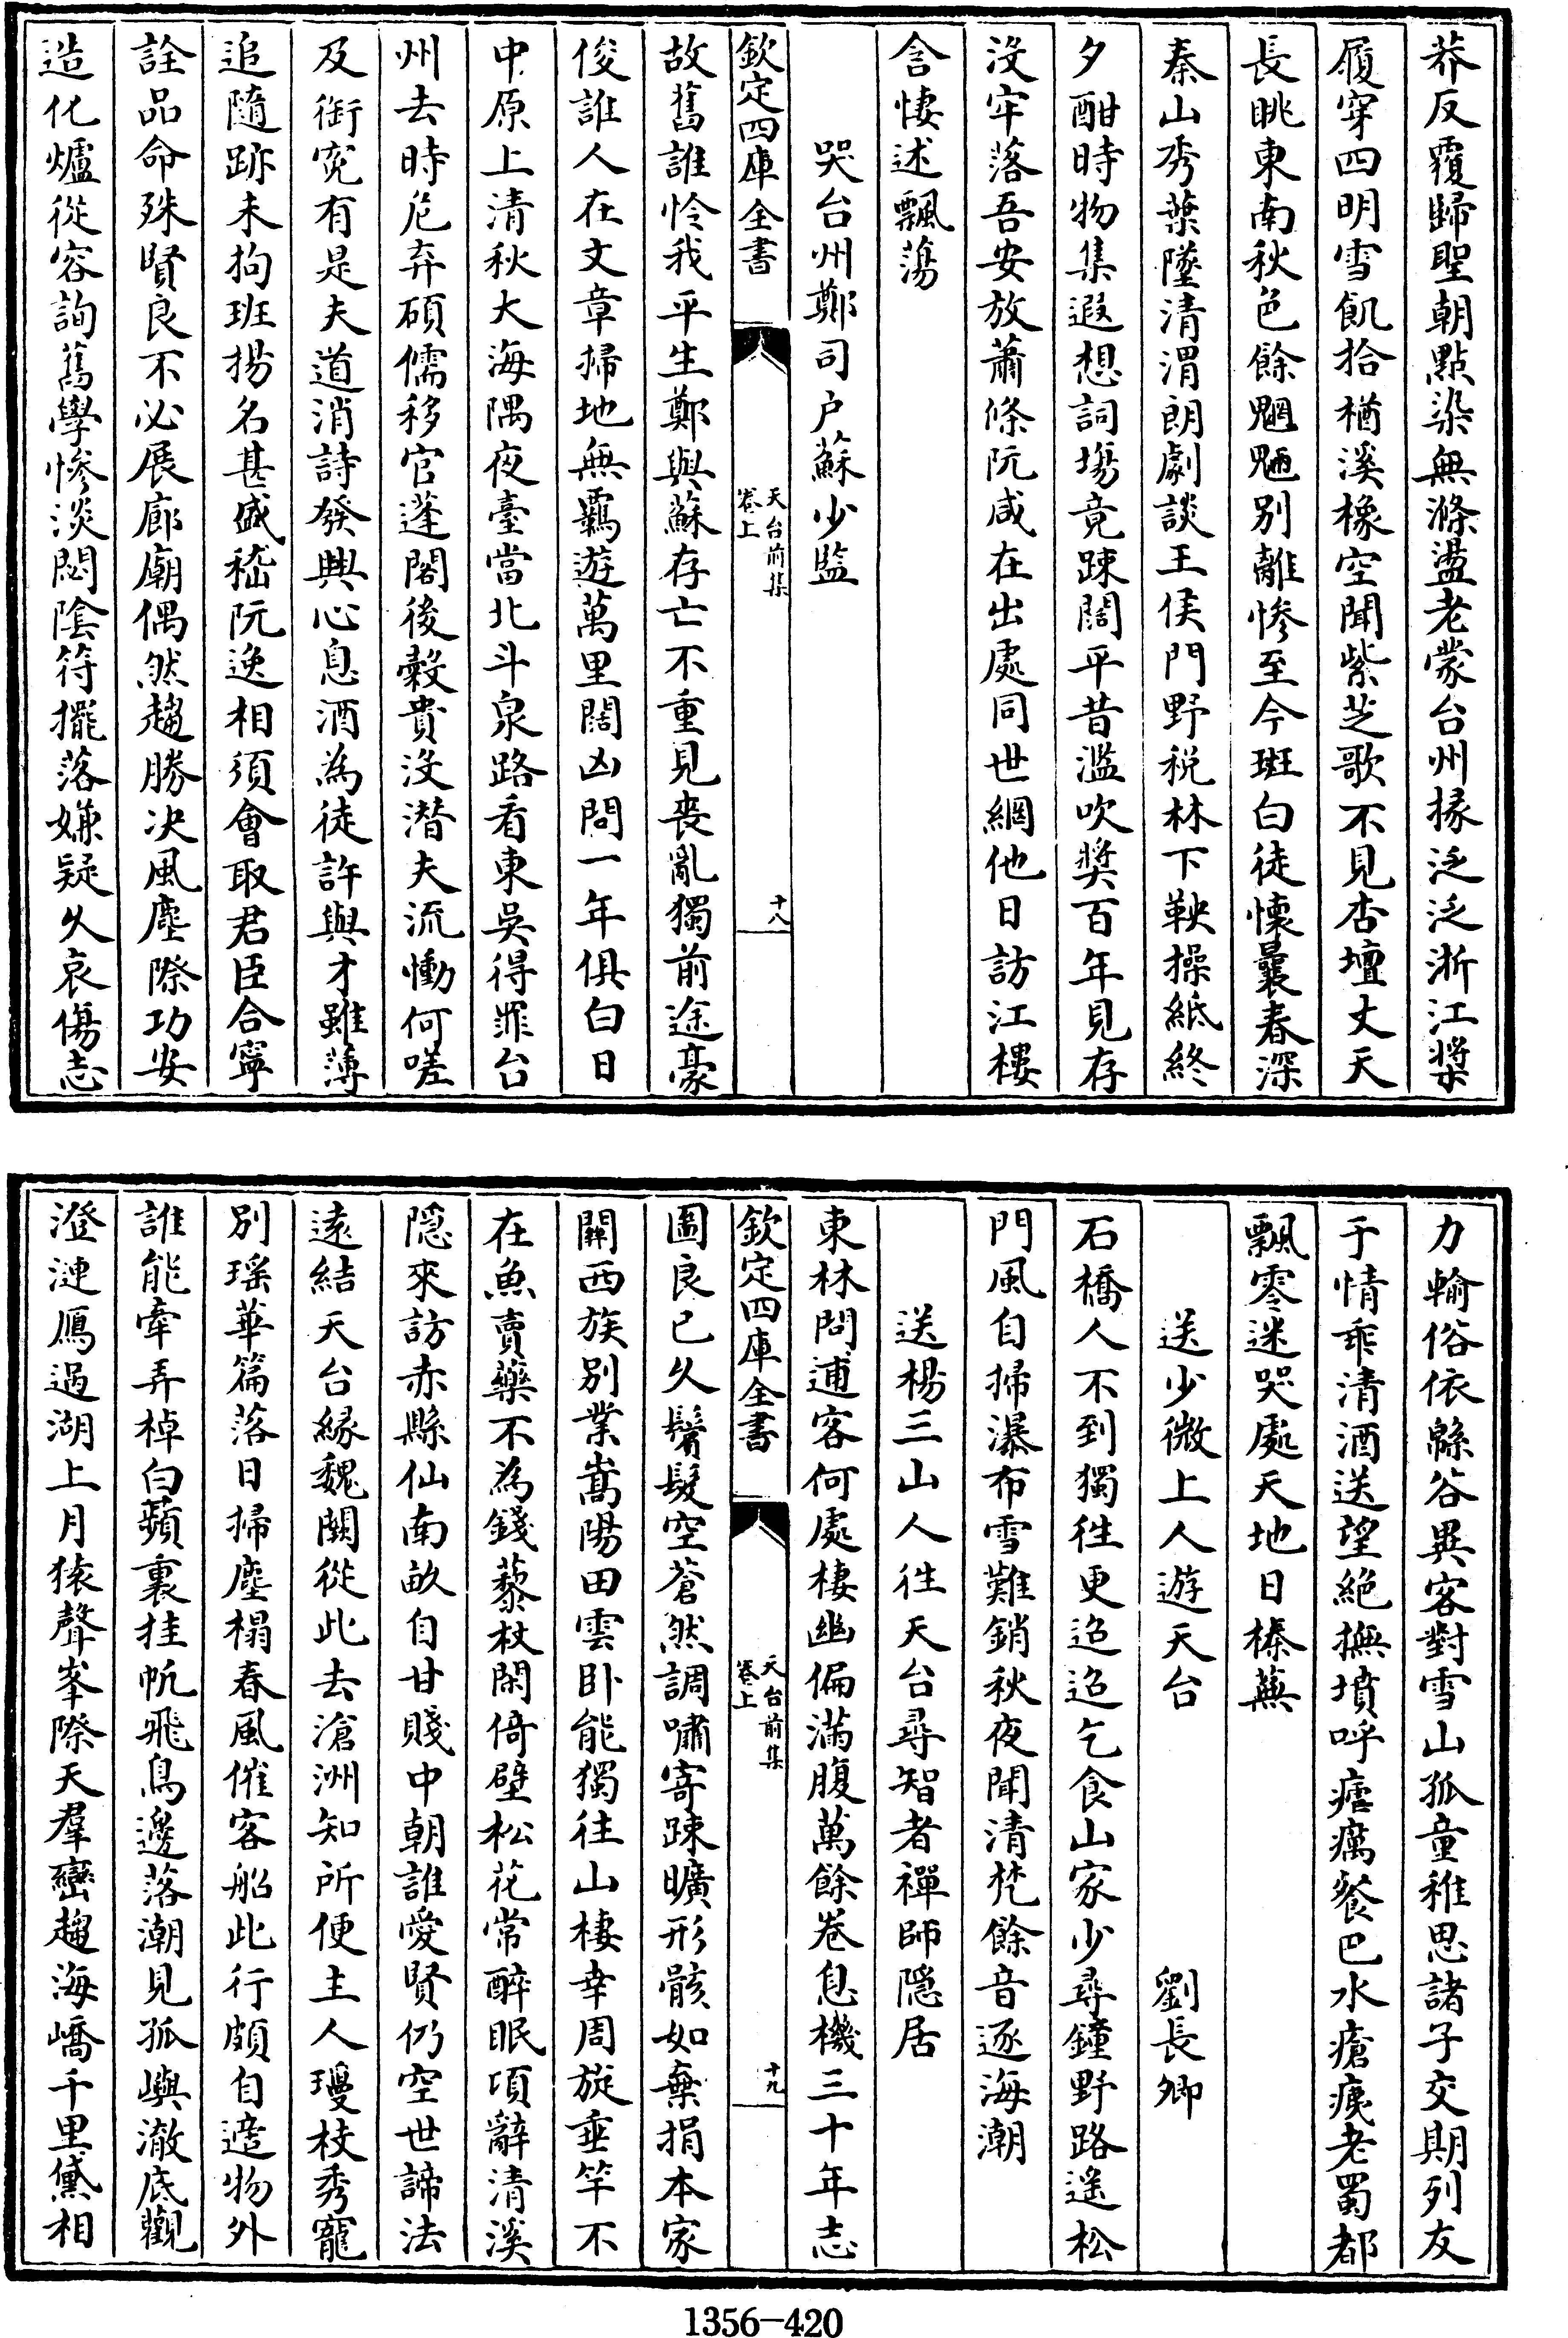 莽反覆歸聖朝點染無滌盪老蒙台州掾泛泛浙江槳
履穿四明雪飢拾楢溪橡空聞紫芝歌不見杏壇丈天
長眺東南秋色餘魍魎别離慘至今斑白徒懷曩春深
秦山秀葉墜清渭朗劇談王侯門野税林下鞅操紙終
夕酣時物集遐想詞塲竟踈闊平昔濫吹奬百年見存
没牢落吾安放蕭條阮咸在出處同世網他日訪江樓
含悽述飄蕩
哭台州鄭司户蘇少監
欽定四庫全書
天台前集
卷上
十八
故舊誰怜我平生鄭與蘇存亡不重見喪亂獨前途豪
俊誰人在文章掃地無覊遊萬里闊凶問一年俱白日
中原上清秋大海隅夜臺當北斗泉路看東吳得罪台
州去時危弃碩儒移官蓬閣後穀貴没潛夫流慟何嗟
及銜寃有是夫道消詩發興心息酒為徒許與才雖薄
追隨跡未拘班揚名甚盛嵇阮逸相須會取君臣合寧
詮品命殊賢良不必展廊廟偶然趨勝决風塵際功安
造化爐從容詢舊學慘淡閟陰符擺落嫌疑久哀傷志
力輸俗依緜谷異客對雪山孤童稚思諸子交期列友
于情乖清酒送望絶撫墳呼瘧癘餐巴水瘡痍老蜀都
飄零迷哭處天地日榛蕪
送少微上人遊天台 劉長卿
石橋人不到獨徃更迢迢乞食山家少尋鐘野路遥松
門風自掃瀑布雪難銷秋夜聞清梵餘音逐海潮
送楊三山人徃天台尋智者禪師隱居
東林問逋客何處棲幽偏滿腹萬餘卷息機三十年志
欽定四庫全書
天台前集
卷上
十九
圖良已久鬢髮空蒼然調嘯寄踈曠形骸如棄捐本家
關西族别業嵩陽田雲卧能獨往山棲幸周旋垂竿不
在魚賣藥不為錢藜杖閑倚壁松花常醉眠項辭清溪
隱來訪赤縣仙南畝自甘賤中朝誰愛賢仍空世諦法
遠結天台緣魏闕從此去滄洲知所便主人瓊枝秀寵
别瑶華篇落日掃塵榻春風催客船此行頗自適物外
誰能牽弄棹白蘋裏挂帆飛鳥邊落潮見孤嶼澈底觀
澄漣鴈過湖上月猿聲峯際天羣巒趨海嶠千里黛相
1356-420